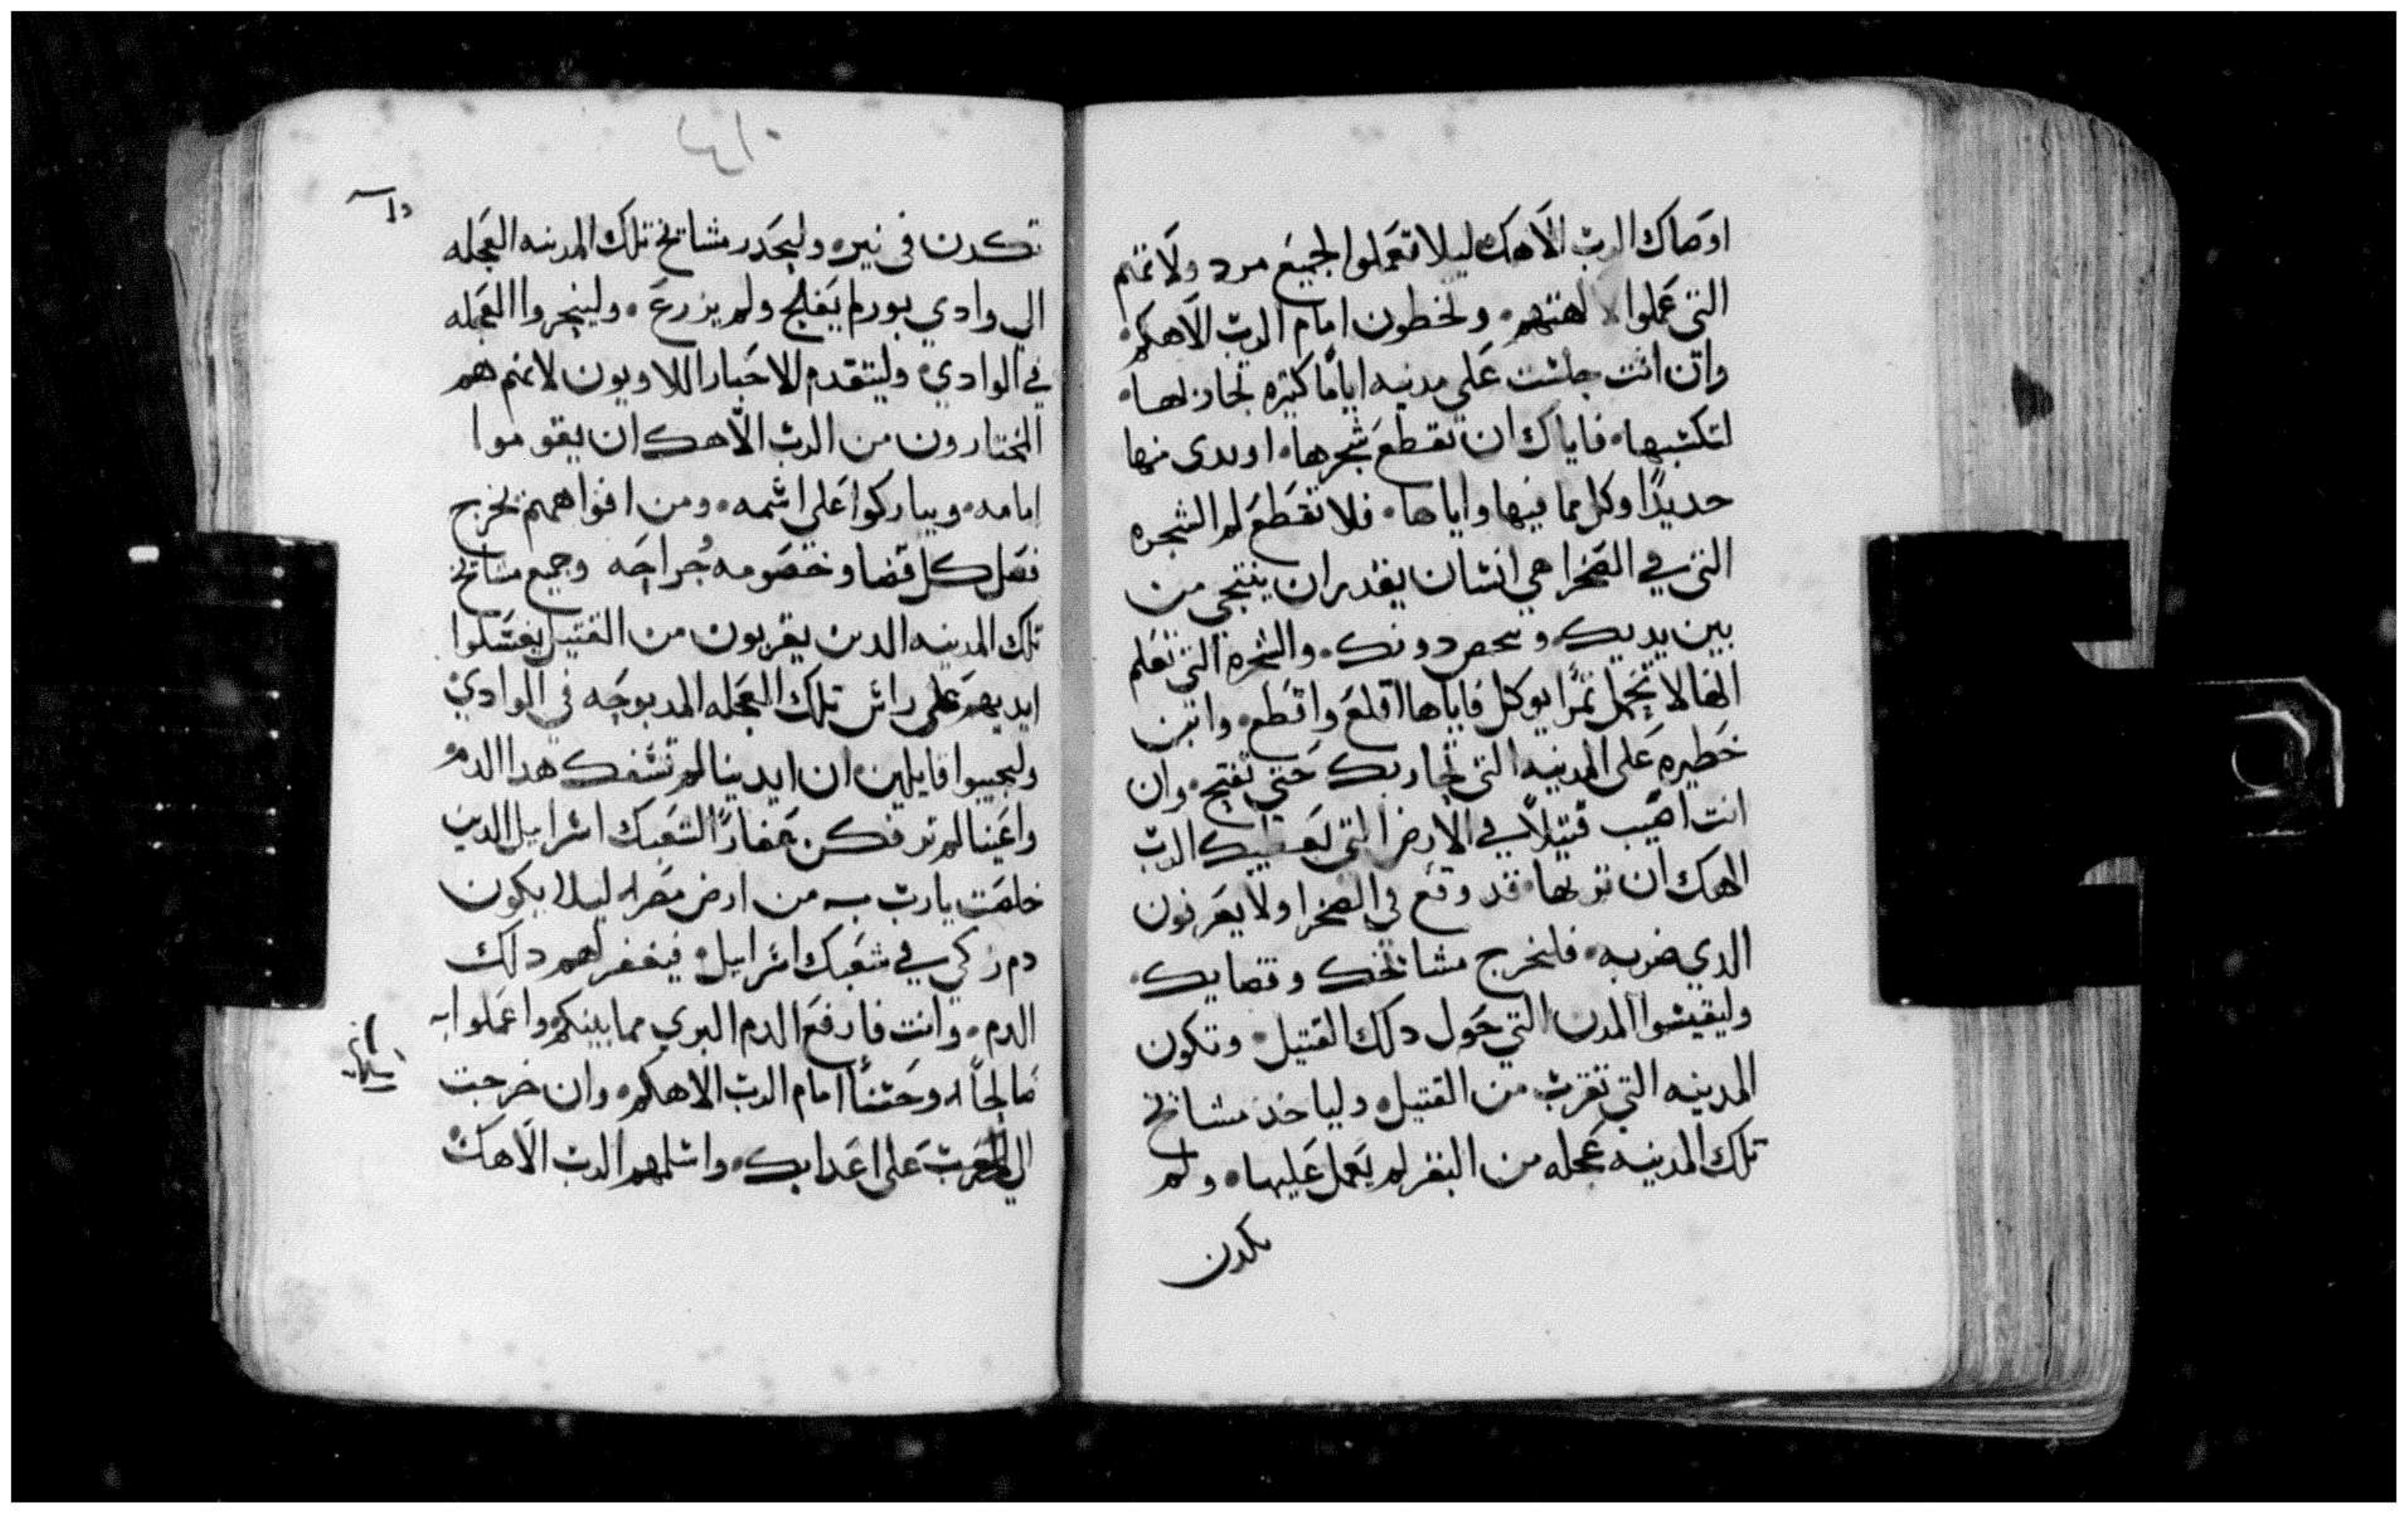 اوصاك الرب الاهك ليلا تعملوا لجميع مرد ولاتهم
التي عملوا لالهتهم. وتخطون امام الرب الاهكم.
وان انت جلست على مدينه اياما كتيره تحاربها.
لتكسبها. فاياك ان تقطع شجرها. او بدى منها
حديدا وكل مما فيها واياها. فلا تقطع لم الشجره
التي في الصخرا هي انسان يقدر ان ينتجي من
بين يديك ويحص دونك. والشجره التي تعلم
انها لا تحمل تمرا يوكل فاياها اقلع واقطع. وابن
خطيره على المدينه التي تحاربك حتي تفتح. وان
انت اصيب قتيلا في الارض التي يعطيك الرب
الهك ان ترتها. قد وقع في الصخرا ولا يعرفون
الدي ضربه. فليخرج مشايخك وقضايك.
وليقيسوا المدن التي حول دلك القتيل. وتكون
المدينه التي تقرب من القتيل. ولياخد مشايخ
تلك المدينه عجله من البقر لم يعمل عليها. ولم
تكدن
٤١٠
تكدن في نيره وليحدر مشايخ تلك المدينه العجله
الي وادي بور لم يفلح ولم يزرع. ولينحروا العجله
في الوادي. وليتقدم الاحبار اللاويون لانهم هم
المختارون من الرب الاهك ان يقوموا
امامه. ويباركوا على اسمه. ومن افواههم تخرج
فصل كل قضا وخصومه جراحه وجميع مشايخ
تلك المدينه الدين يقربون من القتيل يغسلوا
ايديهم على راس تلك العجله المدبوحه في الوادي
وليجيبوا قايلين ان ايدينا لم تسفك هدا الدم
واعيننا لم تر فكن غفارا لشعبك اسراييل الدين
خلصت يارب به من ارض مصر. ليلا يكون
دم زكي في شعبك اسراييل. فيغفر لهم دلك
الدم. وانت فارفع الدم البري مما بينكم واعملوا به
صالحا. وحسنا امام الرب الاهكم. وان خرجت
الي الحرب على اعدايك. واسلمهم الرب الاهك